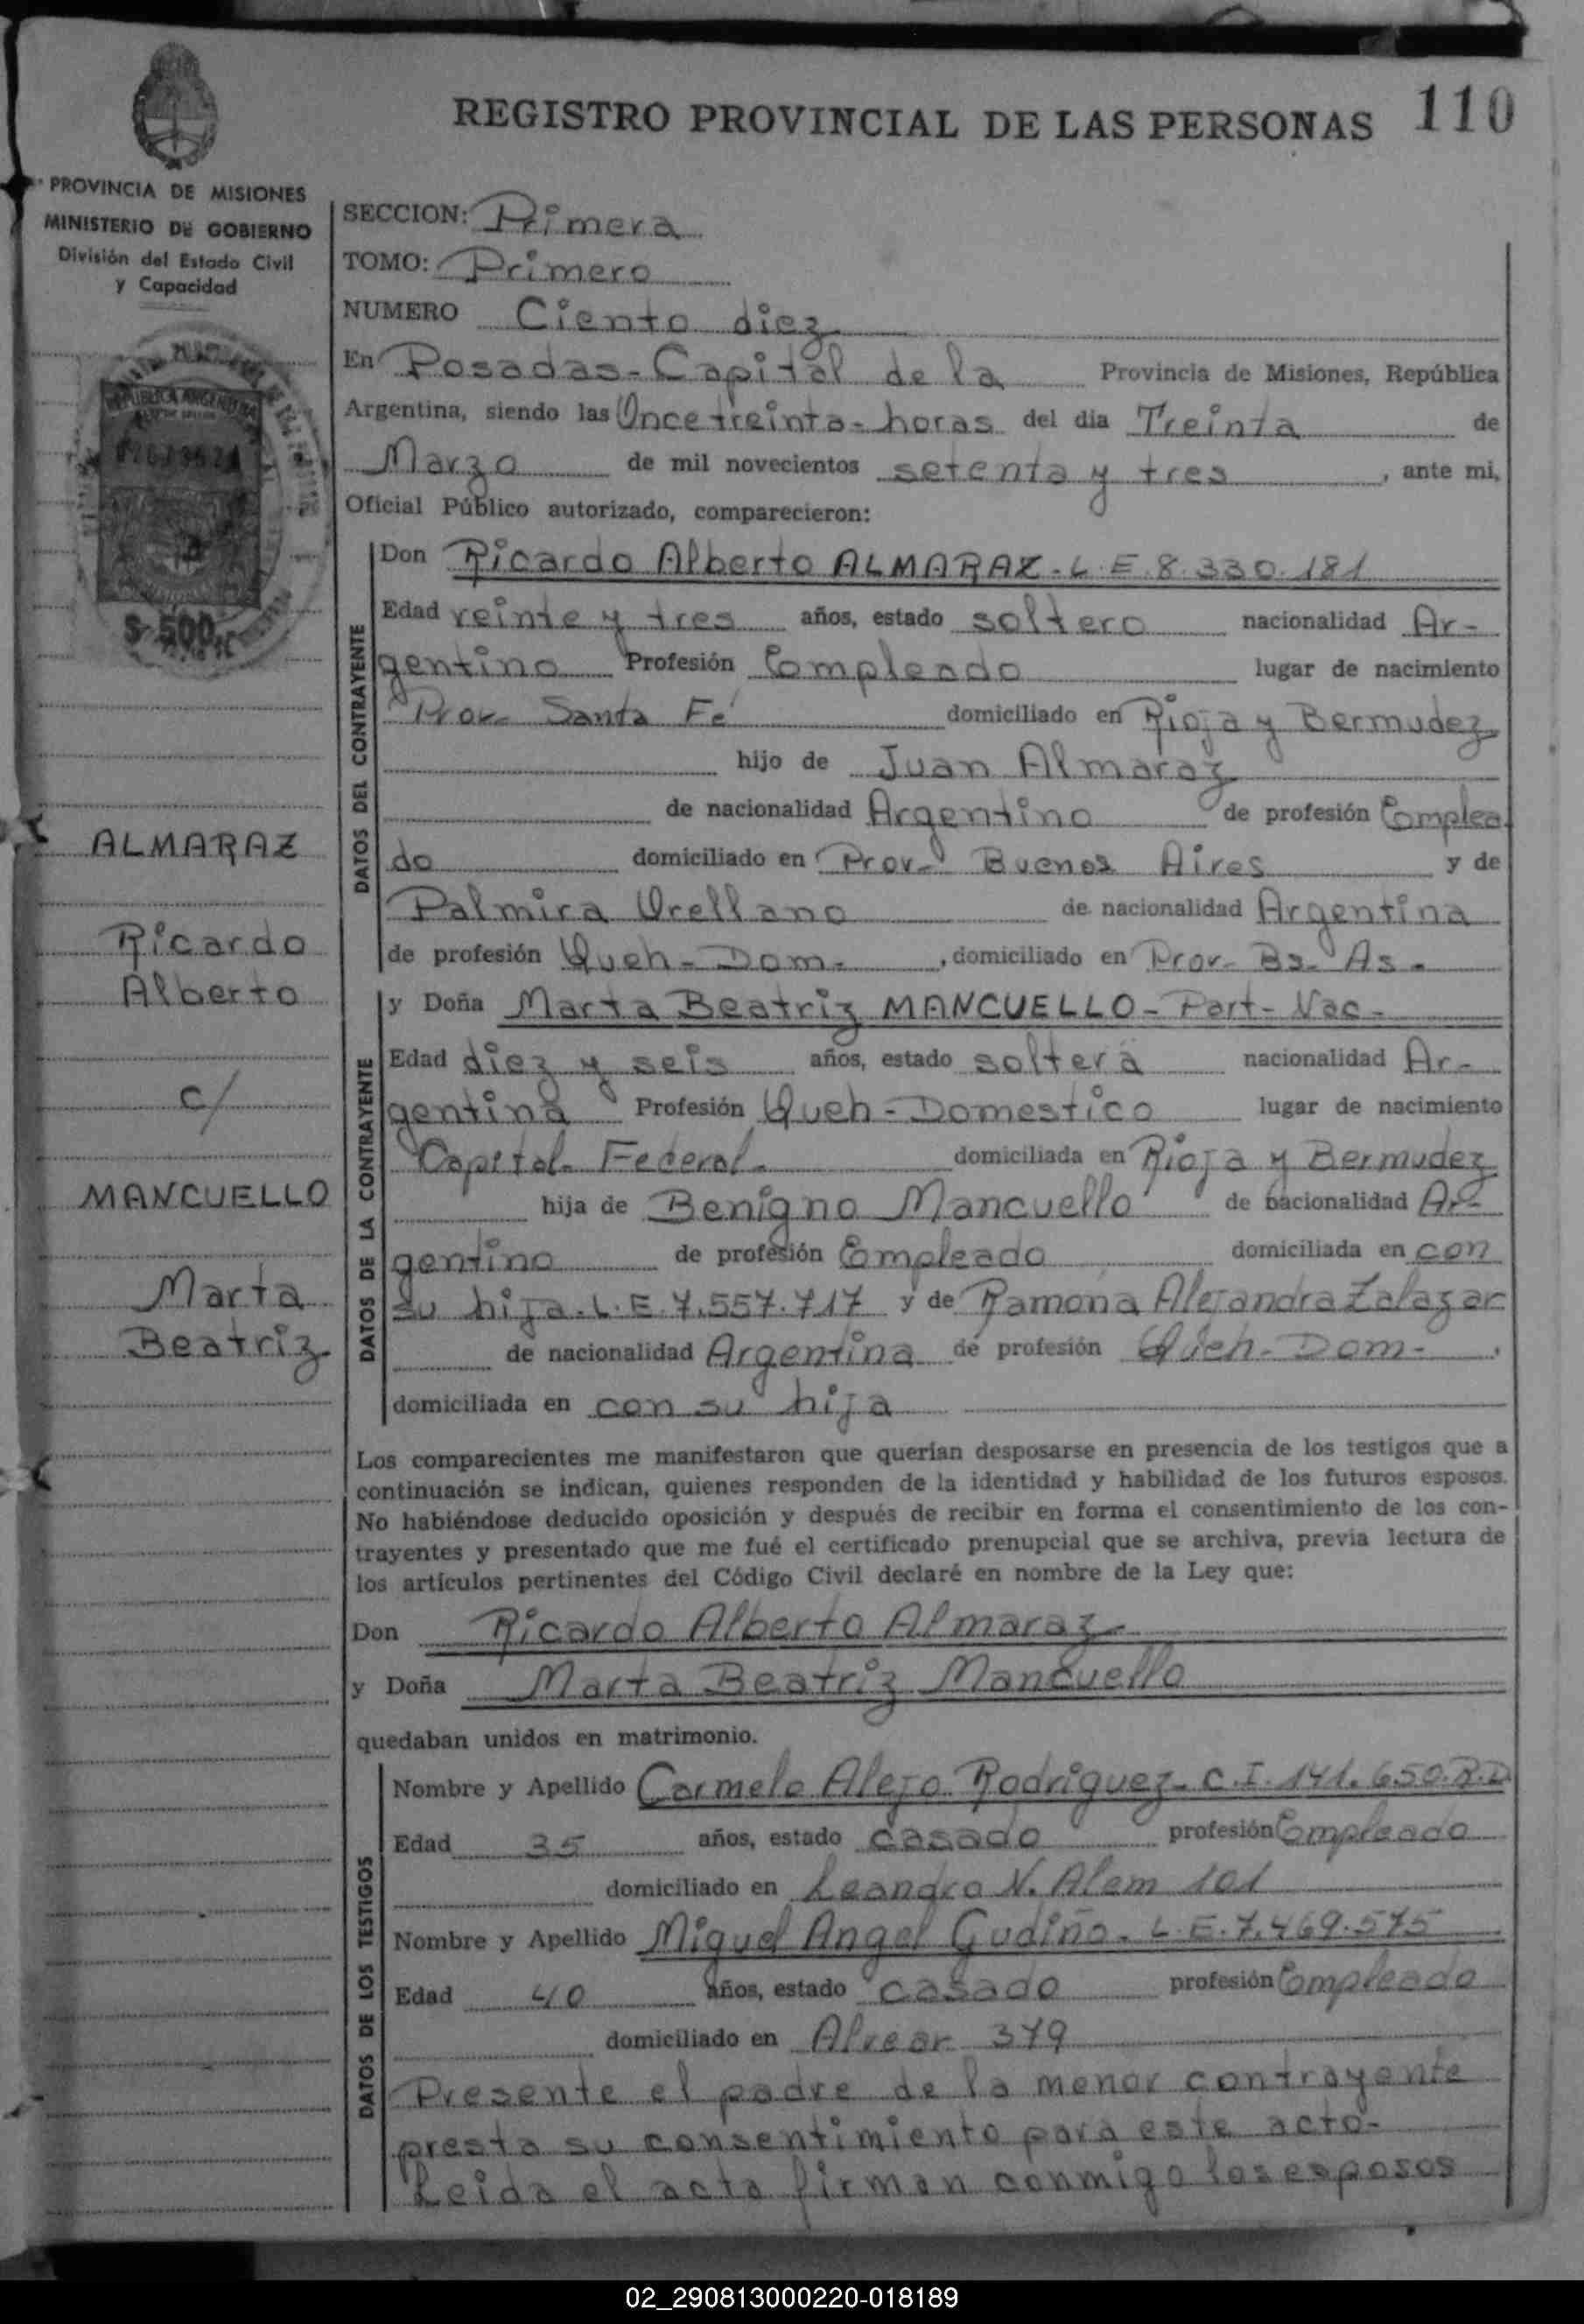 REGISTRO PROVINCIAL DE LAS PERSONAS 110
PROVINCIA DE MISIONES
MINISTERIO DE GOBIERNO
División del Estado Civil
y Capacidad
REPUBLICA ARGENTINA
$ 500
ALMARAZ
Ricardo
Alberto
c/
MANCUELLO
Marta
Beatriz
SECCION: Primera
TOMO: Primero
NUMERO Ciento diez
En Posadas - Capital de la Provincia de Misiones, República
Argentina, siendo las Once treinta - horas del día Treinta de
Marzo de mil novecientos setenta y tres, ante mi,
Oficial Público autorizado, comparecieron:
DATOS DEL CONTRAYENTE
Don Ricardo Alberto ALMARAZ - L. E. 8.330.181
Edad veinte y tres años, estado soltero nacionalidad Ar-
gentino Profesión Empleado lugar de nacimiento
Prov. Santa Fé domiciliado en Rioja y Bermudez
hijo de Juan Almaraz
de nacionalidad Argentino de profesión Emplea
do domiciliado en Prov. Buenos Aires y de
Palmira Orellano de nacionalidad Argentina
de profesión Queh - Dom -, domiciliado en Prov - Bs - As -
DATOS DE LA CONTRAYENTE
y Doña Marta Beatriz MANCUELLO - Part - Nac -
Edad diez y seis años, estado soltera nacionalidad Ar-
gentina Profesión Queh - Domestico lugar de nacimiento
Capital Federal - domiciliada en Rioja y Bermudez
hija de Benigno Mancuello de nacionalidad Ar-
gentino de profesión Empleado domiciliada en con
su hija - L. E. 7.557.717 y de Ramona Alejandra Zalazar
de nacionalidad Argentina de profesión Queh - Dom -,
domiciliada en con su hija
Los comparecientes me manifestaron que querían desposarse en presencia de los testigos que a
continuación se indican, quienes responden de la identidad y habilidad de los futuros esposos.
No habiéndose deducido oposición y después de recibir en forma el consentimiento de los con-
trayentes y presentado que me fué el certificado prenupcial que se archiva, previa lectura de
los artículos pertinentes del Código Civil declaré en nombre de la Ley que:
Don Ricardo Alberto Almaraz
y Doña Marta Beatriz Mancuello
quedaban unidos en matrimonio.
DATOS DE LOS TESTIGOS
Nombre y Apellido Carmelo Alejo Rodriguez - C. I. 141.650.R.D
Edad 35 años, estado casado profesión Empleado
domiciliado en Leandro N. Alem 101
Nombre y Apellido Miguel Angel Gudiño - L. E. 7.469.575
Edad 40 años, estado casado profesión Empleado
domiciliado en Alvear 379
Presente el padre de la menor contrayente
presta su consentimiento para este acto -
Leida el acta firman conmigo los esposos
02_290813000220-018189